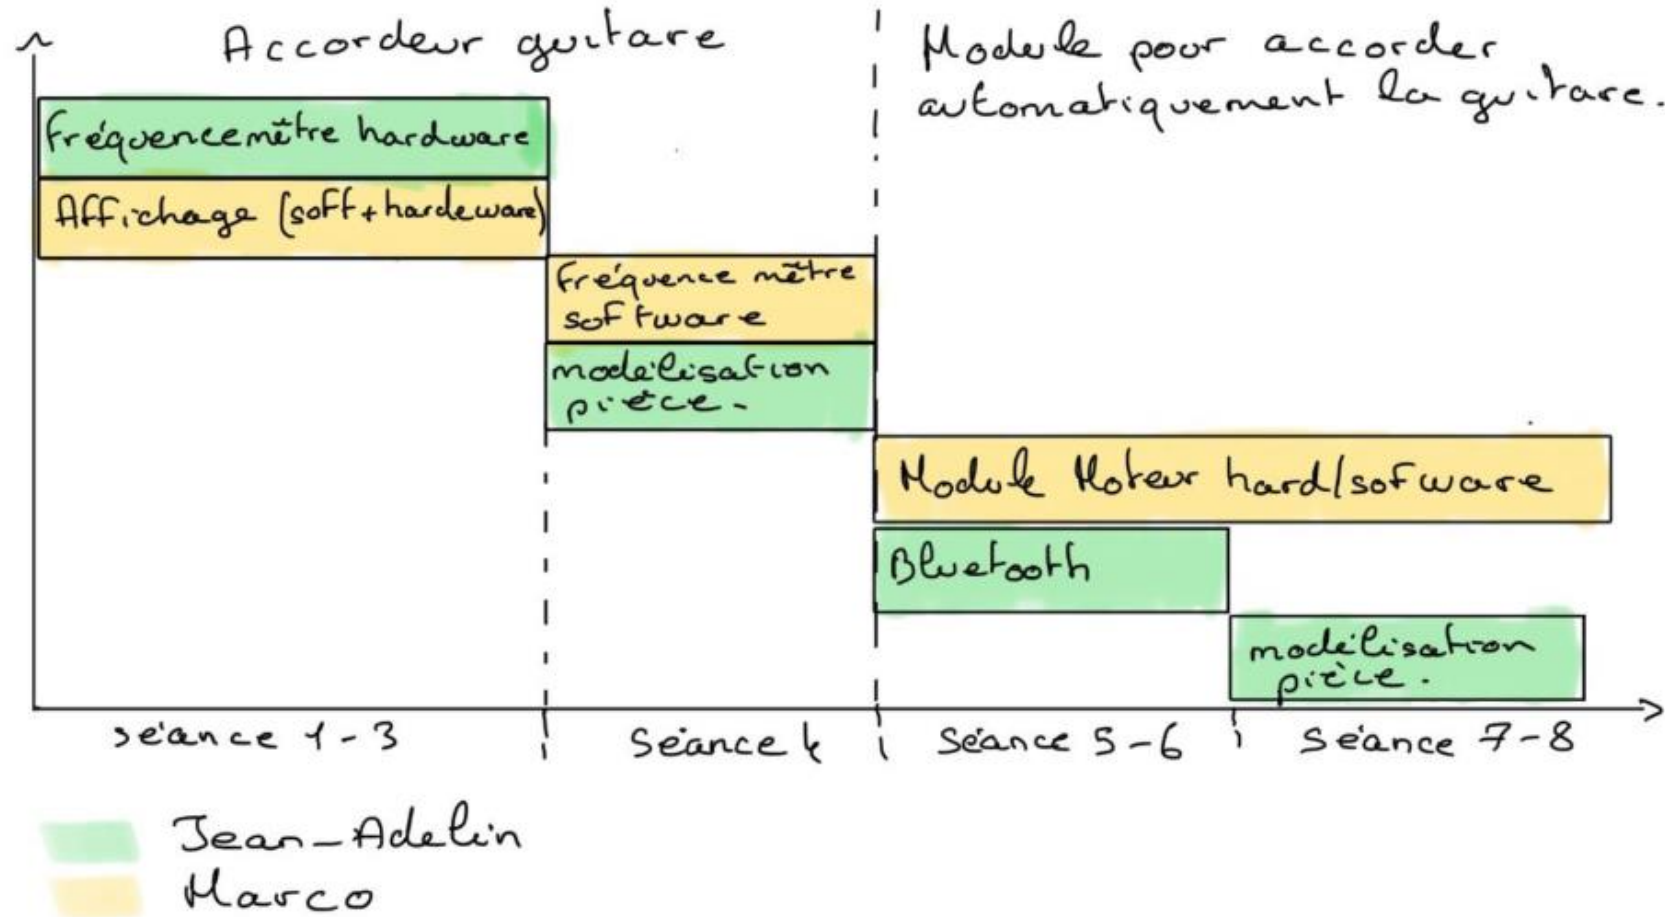 Accordeur guitare
Module pour accorder
automatiquement la guitare.
fréquencemètre hardware
Affichage (soft+hardeware)
fréquence mètre
software
modélisation
pièce.
Module Moteur hard/sofware
Bluetooth
modélisation
pièce.
séance 1-3
séance 4
séance 5-6
séance 7-8
Jean-Adelin
Marco